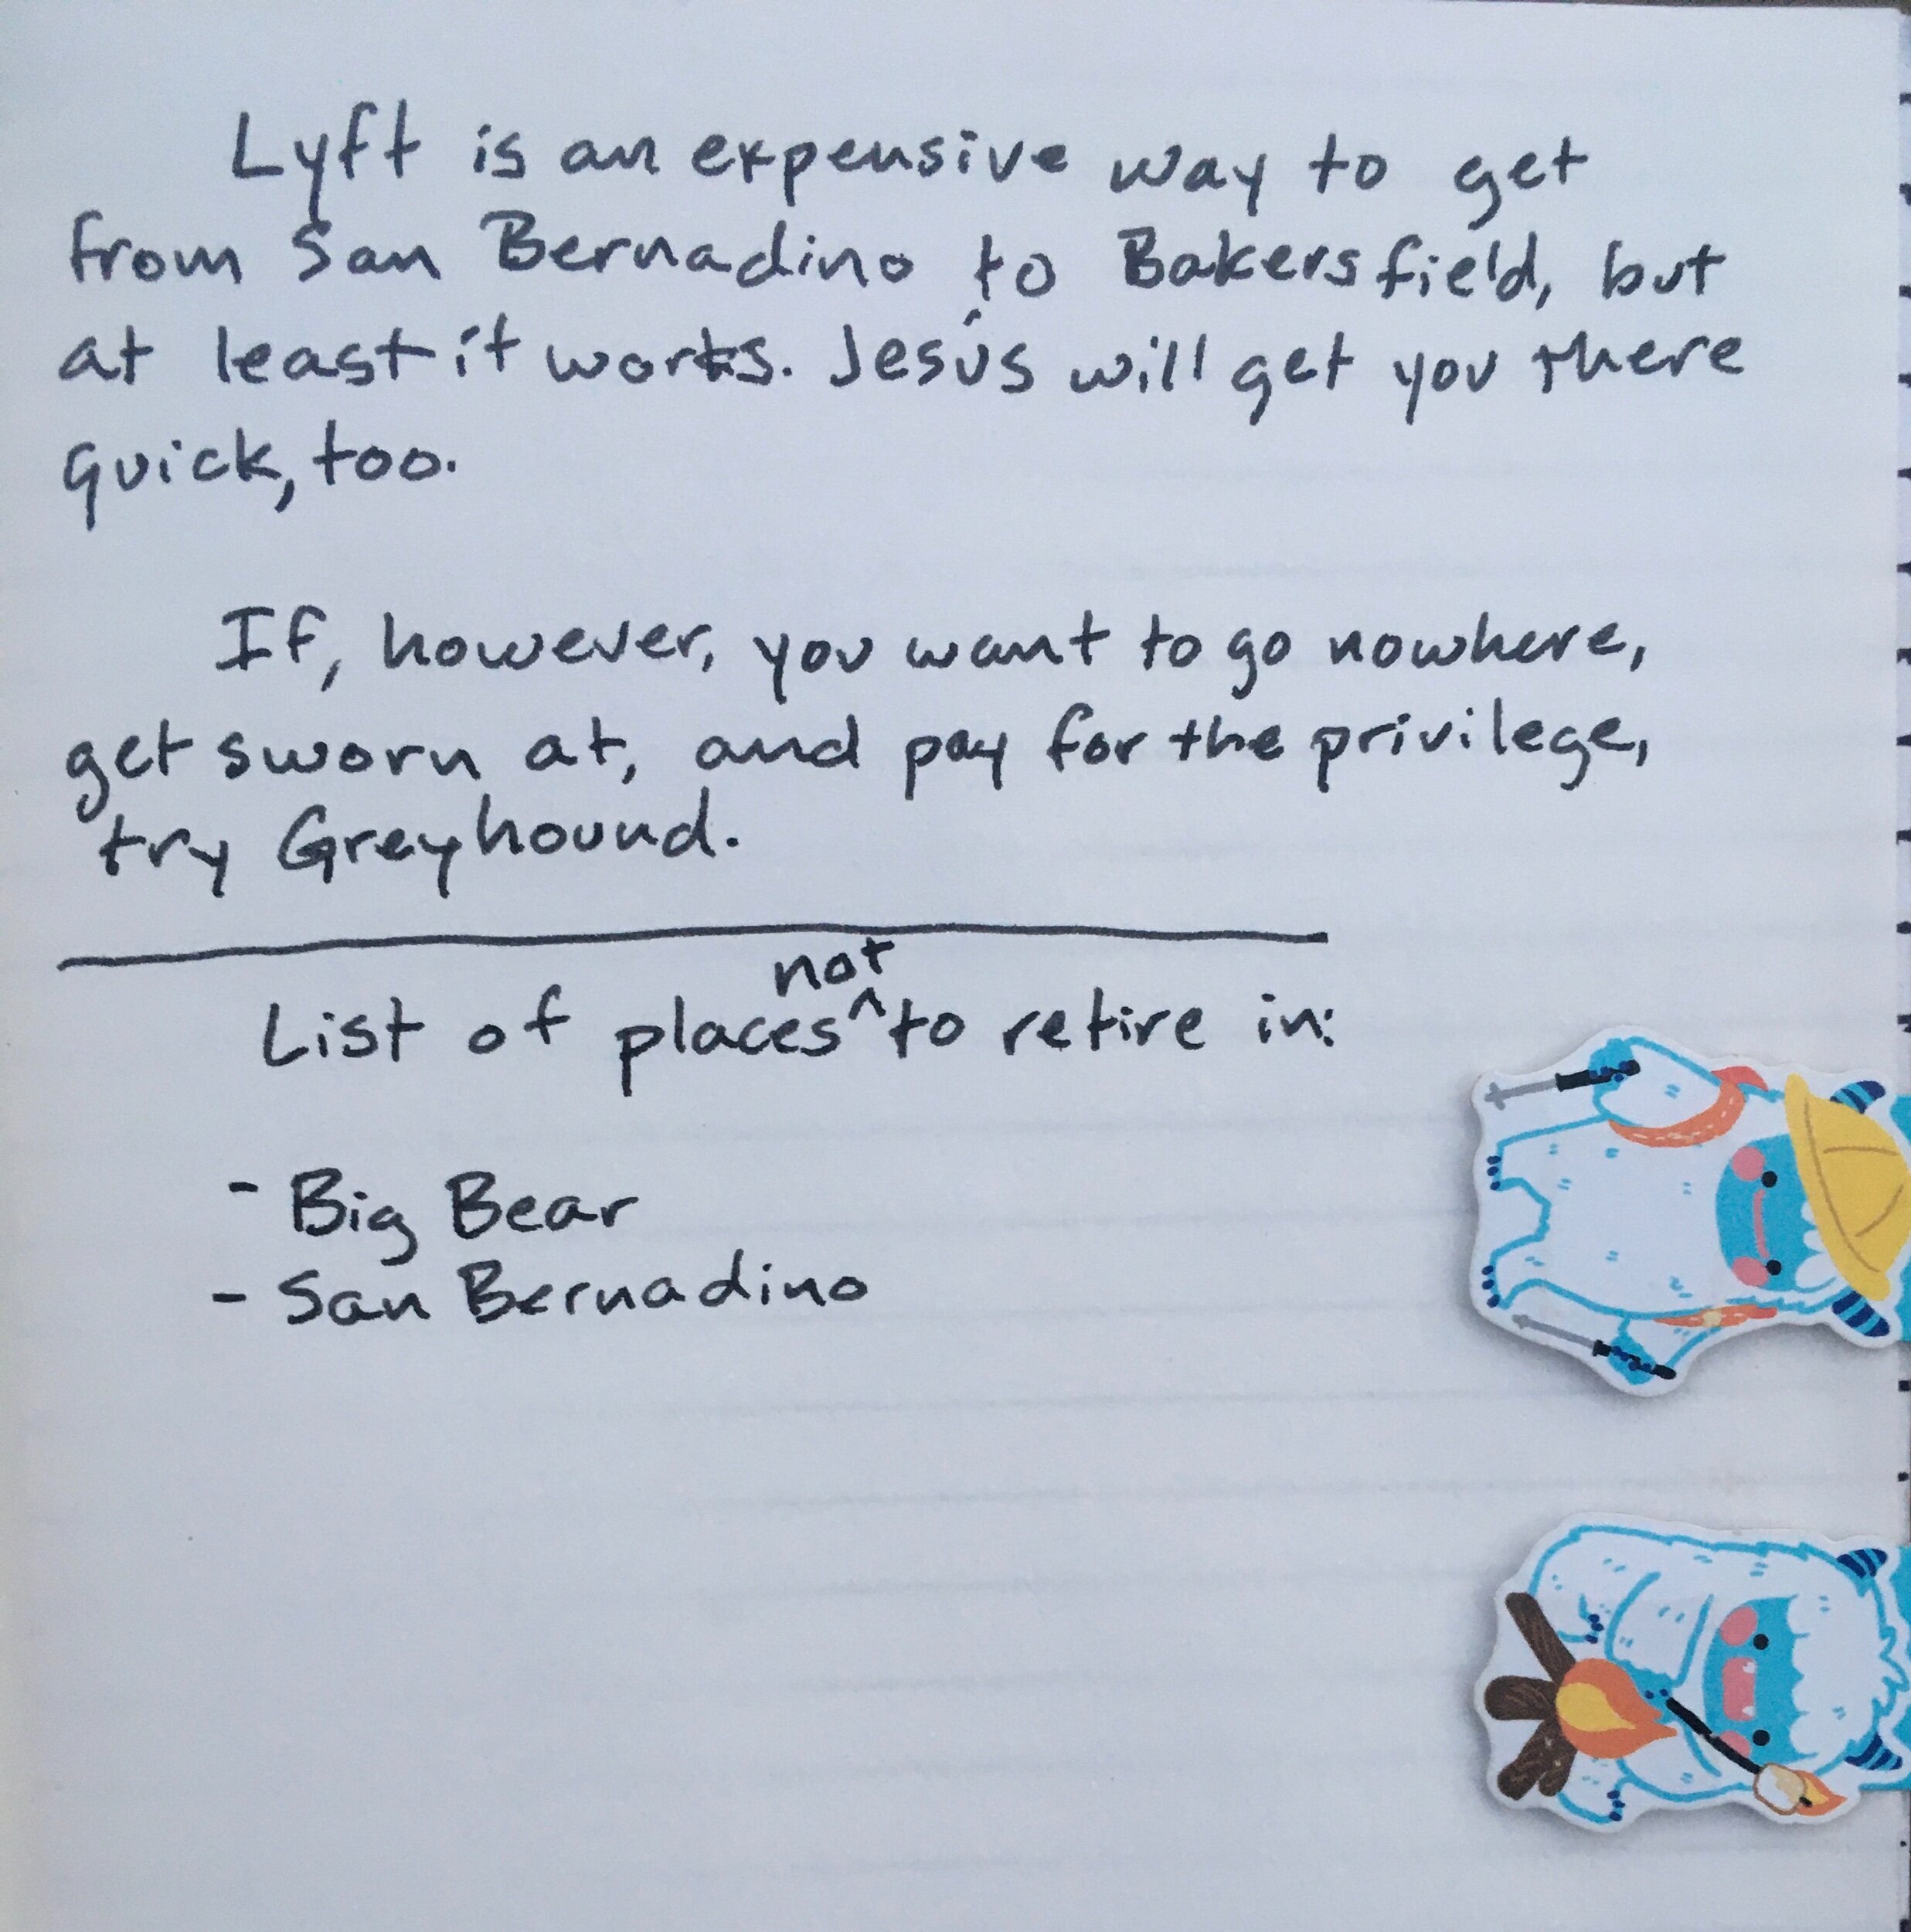 Lyft is an expensive way to get
from San Bernadino to Bakersfield, but
at least it works. Jesús will get you there
quick, too.
If, however, you want to go nowhere,
get sworn at, and pay for the privilege,
try Greyhound.
not
List of places ^ to retire in:
- Big Bear
- San Bernadino